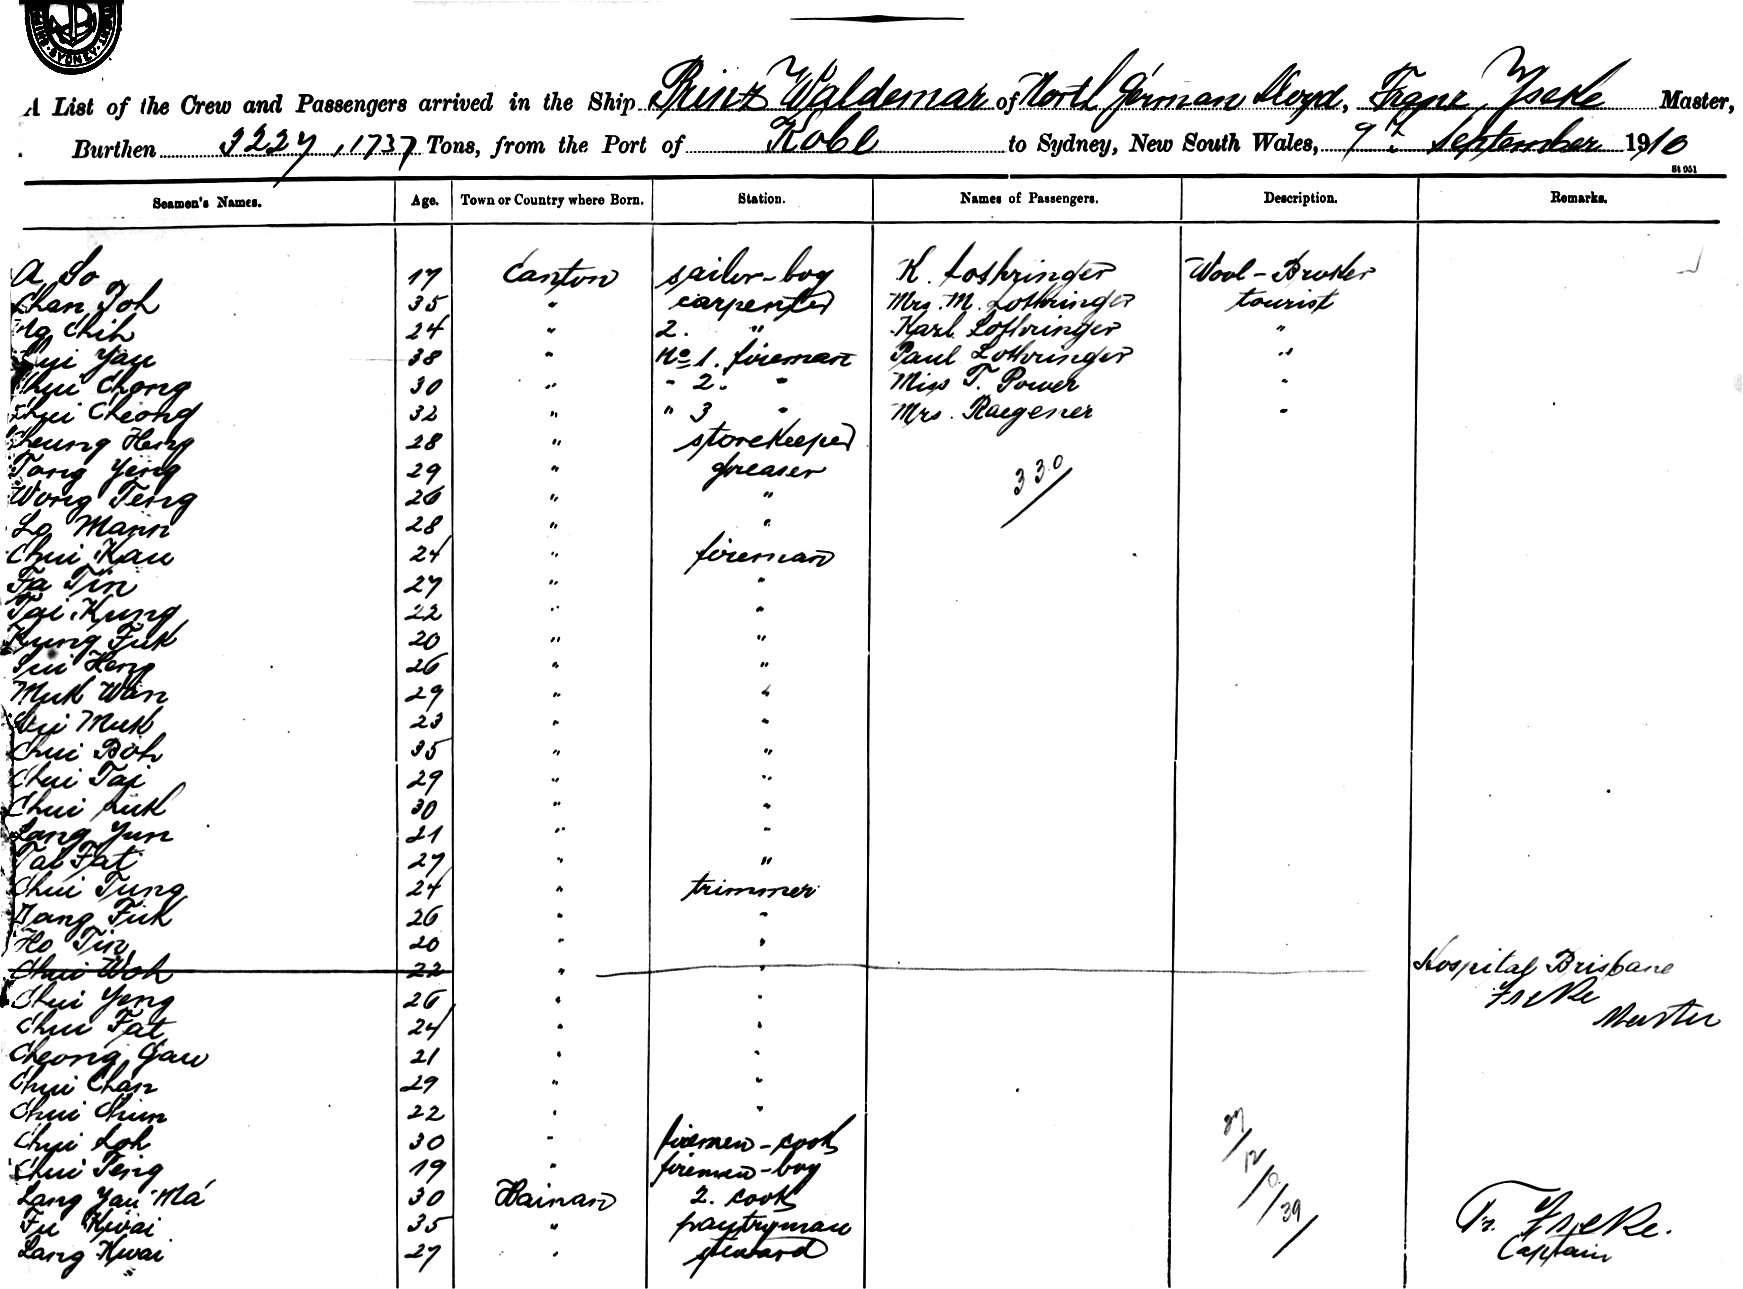 SYDNEY
A List of the Crew and Passengers arrived in the Ship Prinz Waldemar of North German Lloyd, Franz Iseke Master,
Burthen 3227, 1737 Tons, from the Port of Kobe to Sydney, New South Wales, 9th September 1910
St 951
Seamen's Names. Age. Town or Country where Born. Station. Names of Passengers. Description. Remarks.
A So 17 Canton sailor-boy K. Lothringer Wool-Broker
Chan Toh 35 " carpenter Mrs. M. Lothringer tourist
Ng Chih 24 " 2. " Karl Lothringer "
Yau 38 " No 1. fireman Paul Lothringer "
Chui Chong 30 " " 2. " Miss T. Power "
Chui Cheong 32 " " 3 " Mrs. Raegener "
Cheung Heng 28 " storekeeper
Tong Yeng 29 " greaser 330
Wong Teng 26 " "
Lo Mann 28 " "
Chui Kau 24 " fireman
Fa Tin 27 " "
Tai Kung 22 " "
Kung Fuk 20 " "
Sui Heng 26 " "
Muk Wan 29 " "
Sui Muk 23 " "
Chui Boh 35 " "
Chui Tai 29 " "
Chui Luk 30 " "
Lang Yun 21 " "
Tai Fat 27 " "
Chui Tung 24 " trimmer
Fuk 26 " "
Ho Tin 20 " "
Chui Woh 22 " " Hospital Brisbane
Chui Yeng 26 " " Iseke
Chui Fat 24 " " Master
Cheong Gau 21 " "
Chui Chan 29 " "
Chui Chun 22 " "
Chui Loh 30 " firemen-cook
Chui Teng 19 " firemen-boy
Lang Yau Má 30 Hainan 2. cook 39
Fu Kwai 35 " pantryman Fr. Iseke.
Lang Kwai 27 " steward Captain